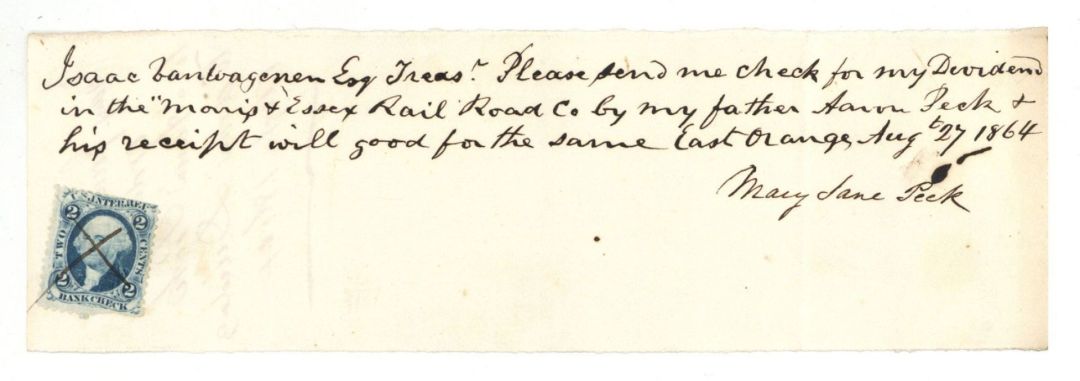 Isaac VanWagenen Esq Treas.r Please send me check for my Dividend
in the "Morris & Essex Rail Road Co by my father Aaron Peck &
his receipt will good for the same East Orange Aug t 27 1864
Mary Jane Peck
U.S. INTER. REV.
2 2
TWO CENTS
2 2
BANK CHECK